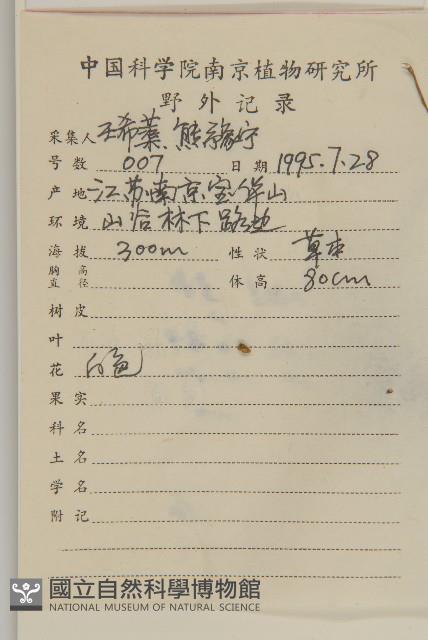 中国科学院南京植物研究所
野外记录
采集人 王希蓁 熊豫宁
号数 007 日期 1995.7.28
产地 江苏南京宝华山
环境 山谷林下路边
海拔 300m 性状 草本
胸高直径 体高 80cm
树皮
叶
花 白色
果实
科名
土名
学名
附记
國立自然科學博物館
NATIONAL MUSEUM OF NATURAL SCIENCE